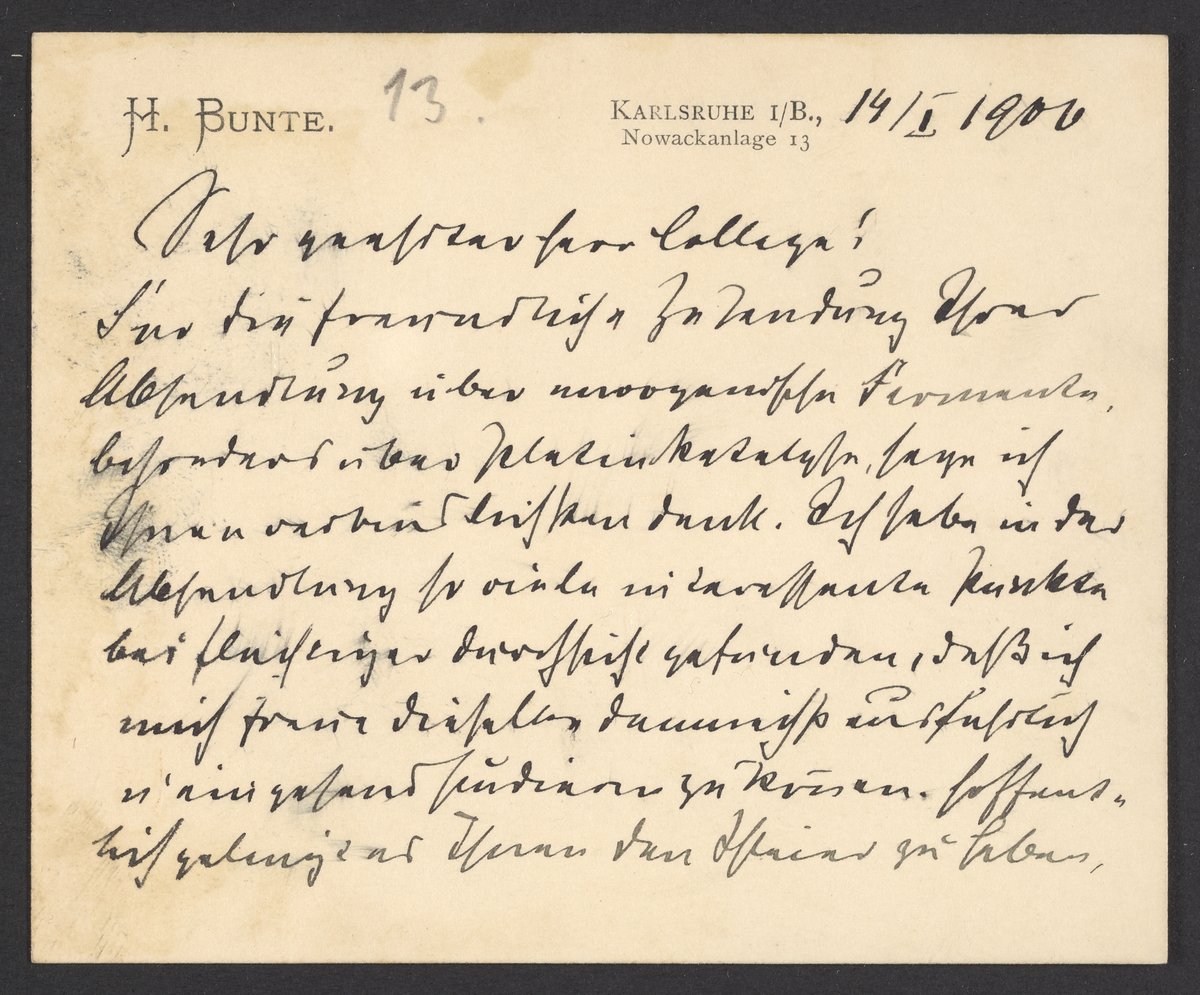 H. BUNTE.
13.
KARLSRUHE I/B., 14/I 1906
Nowackanlage 13
Sehr geehrter Herr College!
Für die freundliche Zusendung Ihrer
Abhandlung über anorganische Fermente,
besonders über Platinkatalyse, sage ich
Ihnen verbindlichsten Dank. Ich habe in der
Abhandlung so viele interessante Punkte
bei flüchtiger Durchsicht gefunden, daß ich
mich freue dieselbe demnächst ausführlich
u eingehend studieren zu können. Hoffent-
lich gelingt es Ihnen den Schleier zu heben,